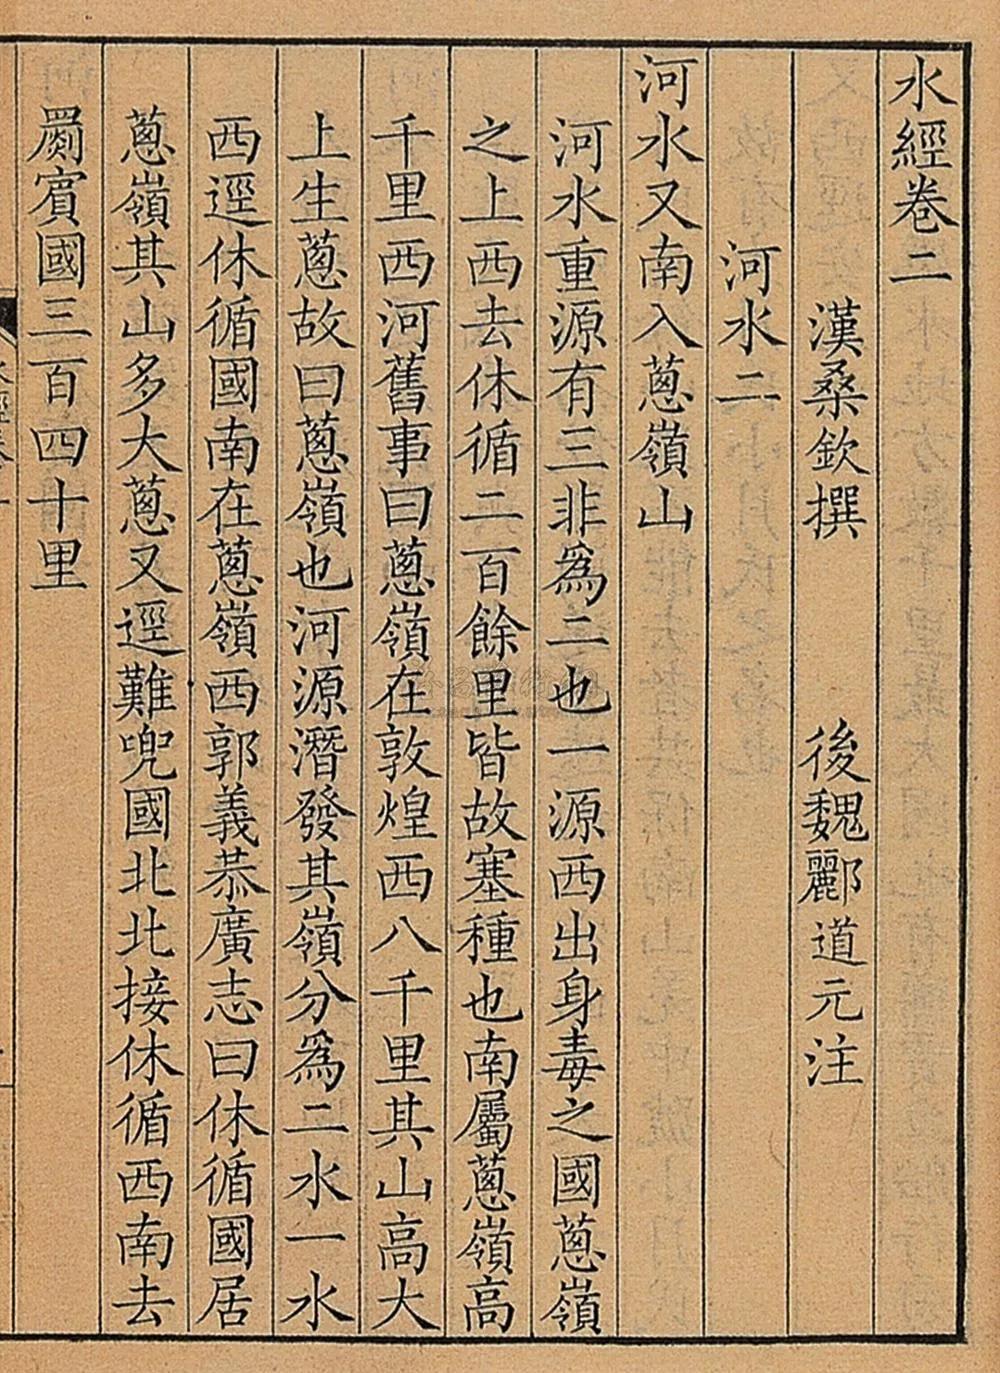 水經卷二
漢桑欽撰 後魏酈道元注
河水二
河水又南入蔥嶺山
河水重源有三非爲二也一源西出身毒之國蔥嶺
之上西去休循二百餘里皆故塞種也南屬蔥嶺高
千里西河舊事曰蔥嶺在敦煌西八千里其山高大
上生蔥故曰蔥嶺也河源潛發其嶺分爲二水一水
西逕休循國南在蔥嶺西郭義恭廣志曰休循國居
蔥嶺其山多大蔥又逕難兜國北北接休循西南去
罽賓國三百四十里